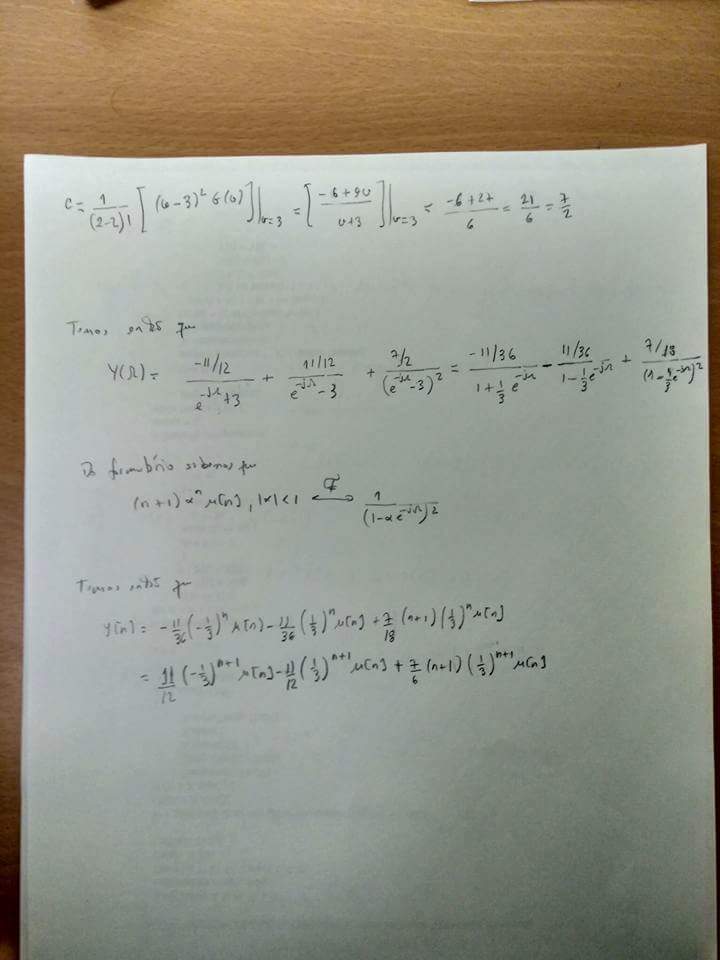 C = \frac{1}{(2-2)!} [ (v-3)^2 G(v) ] |_{v=3} = [ \frac{-6+9v}{v+3} ] |_{v=3} = \frac{-6+27}{6} = \frac{21}{6} = \frac{7}{2}
Temos então que
Y(Ω) = \frac{-11/12}{e^{-jΩ}+3} + \frac{11/12}{e^{-jΩ}-3} + \frac{7/2}{(e^{-jΩ}-3)^2} = \frac{-11/36}{1+\frac{1}{3}e^{-jΩ}} - \frac{11/36}{1-\frac{1}{3}e^{-jΩ}} + \frac{7/18}{(1-\frac{1}{3}e^{-jΩ})^2}
Do formulário sabemos que
(n+1) α^n u[n], |α|<1 \xleftrightarrow{F} \frac{1}{(1-αe^{-jΩ})^2}
Temos então que
y[n] = -\frac{11}{36}(-\frac{1}{3})^n u[n] - \frac{11}{36}(\frac{1}{3})^n u[n] + \frac{7}{18}(n+1)(\frac{1}{3})^n u[n]
= \frac{11}{12}(-\frac{1}{3})^{n+1} u[n] - \frac{11}{12}(\frac{1}{3})^{n+1} u[n] + \frac{7}{6}(n+1)(\frac{1}{3})^{n+1} u[n]